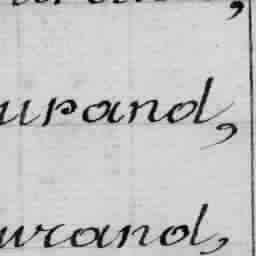 urand,
urand,